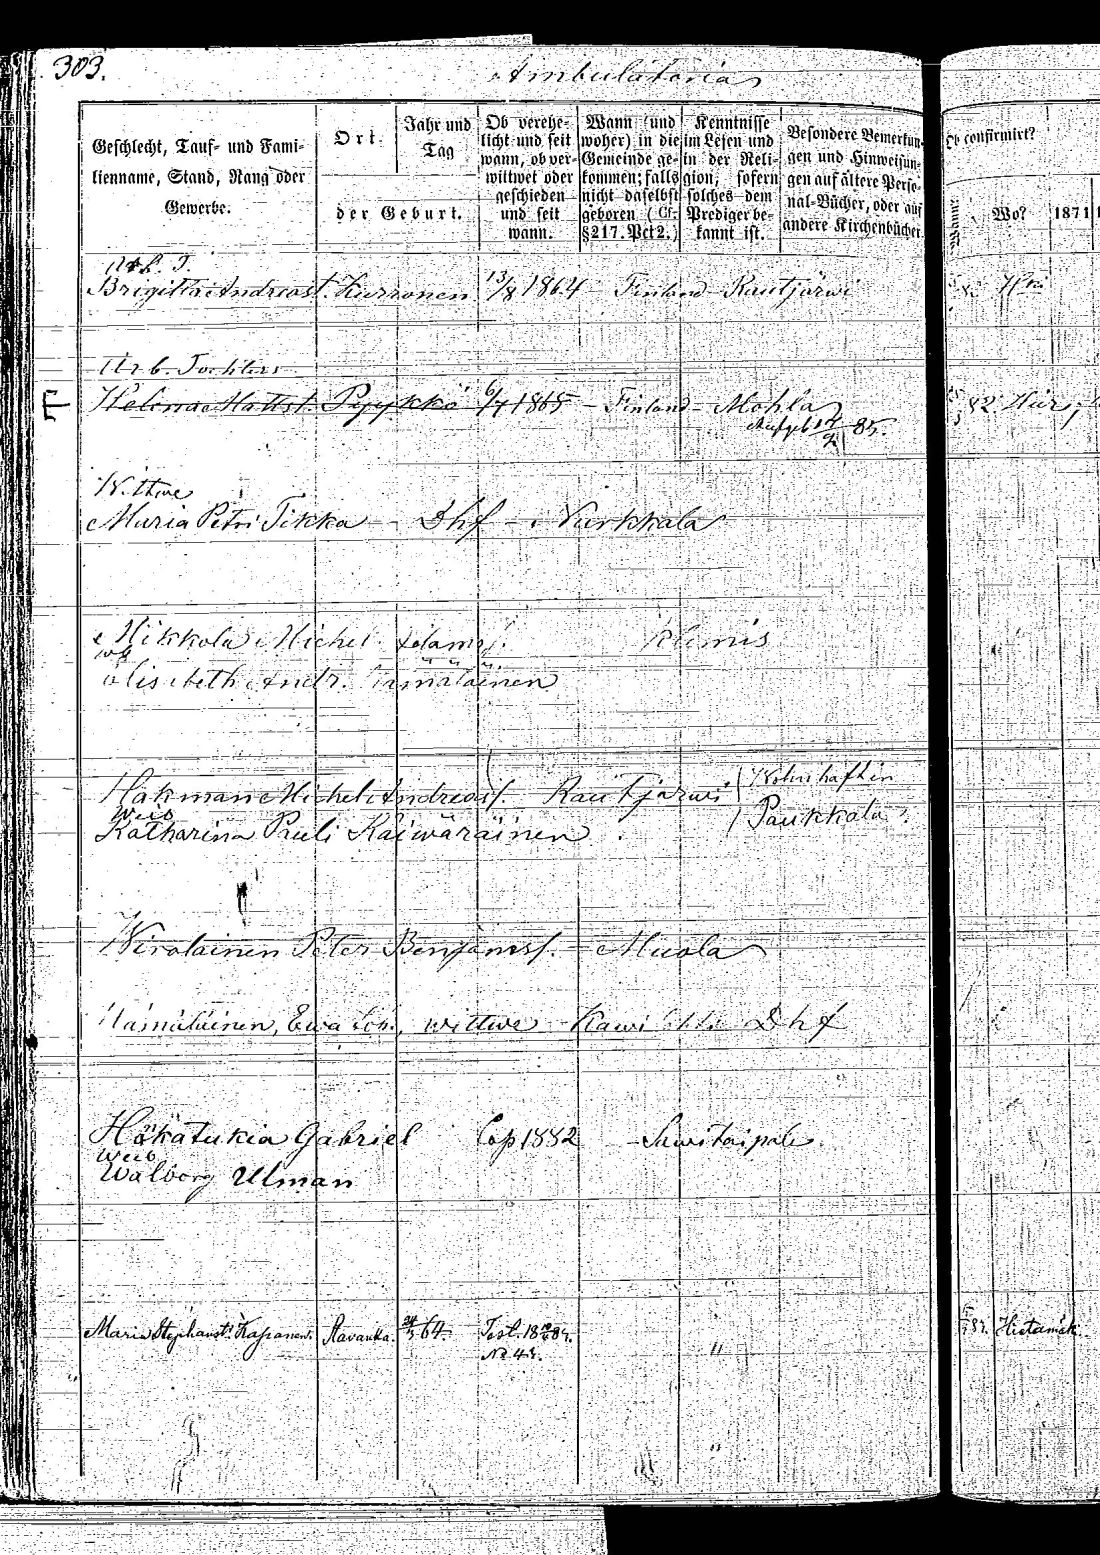 303.
Ambulatoria
Geschlecht, Tauf- und Fami-
lienname, Stand, Rang oder
Gewerbe.
Ort.
Jahr und
Tag
der Geburt.
Ob verehe-
licht und seit
wann, ob ver-
wittwet oder
geschieden
und seit
wann.
Wann (und
woher) in die
Gemeinde ge-
kommen; falls
nicht daselbst
geboren (Cf.
§ 217. Pct 2.)
Kenntnisse
im Lesen und
in der Reli-
gion, sofern
solches dem
Prediger be-
kannt ist.
Besondere Bemerkun-
gen und Hinweisun-
gen auf ältere Perso-
nal-Bücher, oder auf
andere Kirchenbücher.
Ob confirmirt?
Wann?
Wo?
1871
Brigitta Andreast. Kurronen 13/8 1864 Finland Rautjärwi
Arb. Tochter
Helena Mattst. Pyykkö 6/7 1865 – Finland – Mohla
82
85.
Wittwe
Maria Petri Tikka – Dhf – Nurkkala
Mikkola Michel Adams.
Elisabeth Andr. Hämäläinen
Hakman Michel Andreass. Rautjärwi
Weib
Katharina Pauli Käiwäräinen
Wohnhaft in
Paukkala
Wirolainen Peter Benjams. – Muola
Hämäläinen, Ewa Joh., wittwe Dhf
Häkätukia Gabriel Cop 1882 – Sawitaipale
Weib
Walborg Ulman
Maria Stephanst. Kasanen. Rawanka. 64. Test.
No 43.
"
Hietamäk.
"